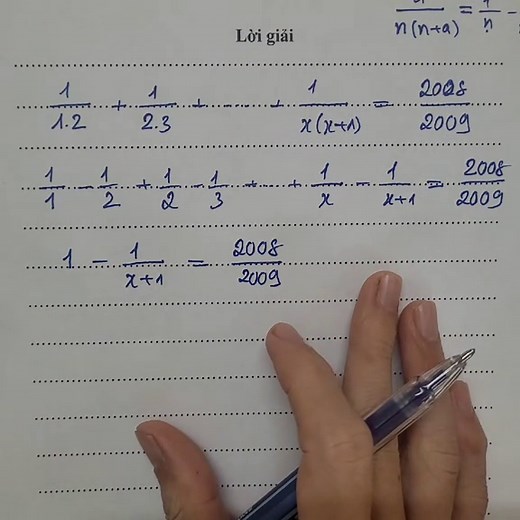 n(n+a) = 1/n -
Lời giải
1/1.2 + 1/2.3 + ...... + 1/x(x+1) = 2008/2009
1/1 - 1/2 + 1/2 - 1/3 + ... + 1/x - 1/x+1 = 2008/2009
1 - 1/x+1 = 2008/2009